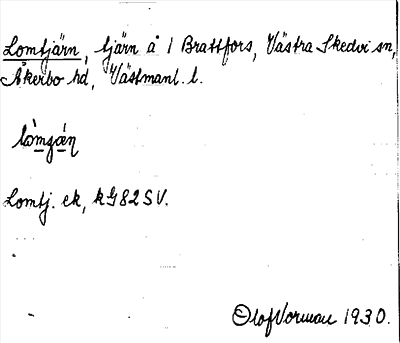 Lomtjärn, tjärn å 1 Brattfors, Västra Skedvi sn,
Åkerbo hd, Västmanl. l.
lòmʒæ̀n
Lomtj. ek, kG82SV.
Olof Vorman 1930.